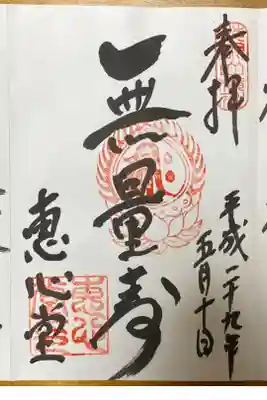 奉拝
平成二十九年
五月十日
無量寿
恵心堂